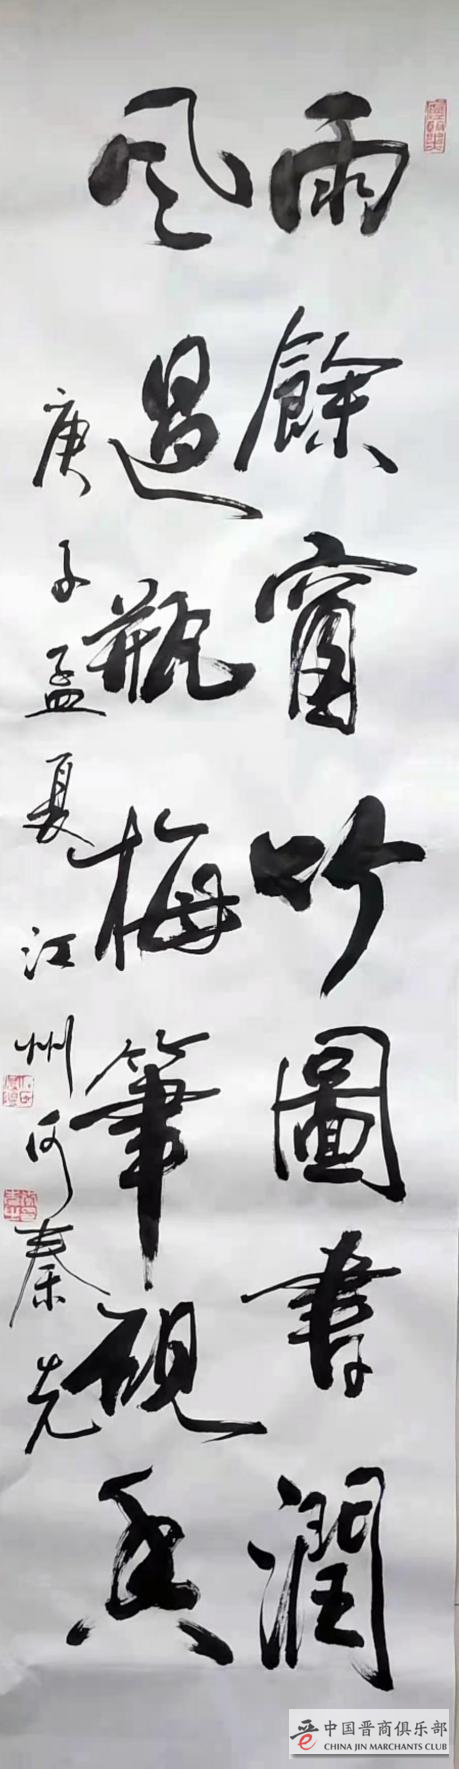 雨餘窗竹圖書潤
风過瓶梅筆硯香
庚子孟夏江州何秦先
中国晋商俱乐部
CHINA JIN MARCHANTS CLUB